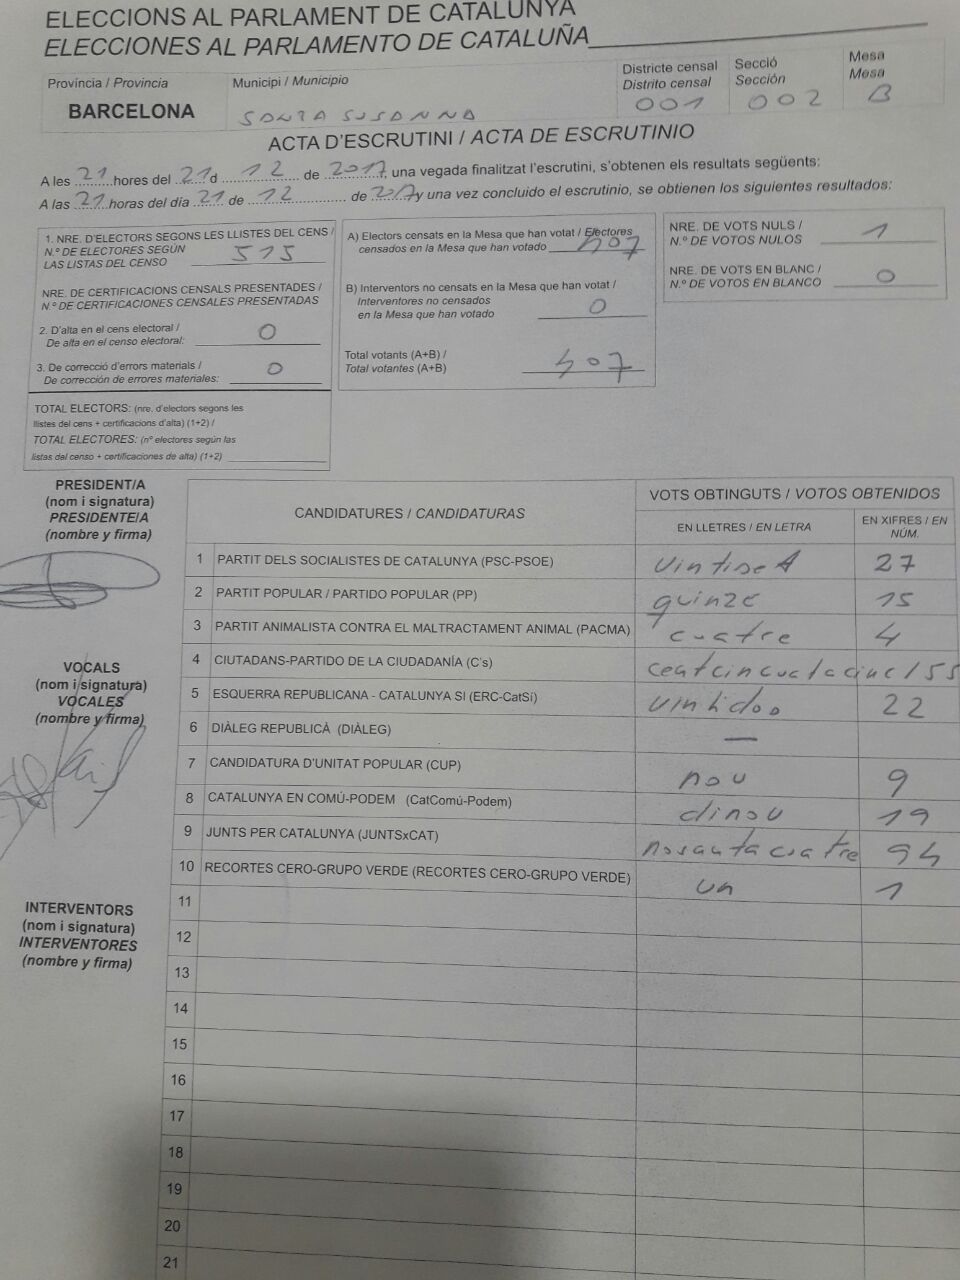 ELECCIONS AL PARLAMENT DE CATALUNYA
ELECCIONES AL PARLAMENTO DE CATALUÑA
Província / Provincia
BARCELONA
Municipi / Municipio
SANTA SUSANNA
Districte censal
Distrito censal
001
Secció
Sección
002
Mesa
Mesa
B
ACTA D'ESCRUTINI / ACTA DE ESCRUTINIO
A les 21 hores del 21 d 12 de 2017, una vegada finalitzat l'escrutini, s'obtenen els resultats següents:
A las 21 horas del día 21 de 12 de 2017 y una vez concluido el escrutinio, se obtienen los siguientes resultados:
1. NRE. D'ELECTORS SEGONS LES LLISTES DEL CENS /
N.º DE ELECTORES SEGÚN
LAS LISTAS DEL CENSO 515
NRE. DE CERTIFICACIONS CENSALS PRESENTADES /
N.º DE CERTIFICACIONES CENSALES PRESENTADAS
2. D'alta en el cens electoral /
De alta en el censo electoral: 0
3. De correcció d'errors materials /
De corrección de errores materiales: 0
TOTAL ELECTORS: (nre. d'electors segons les
llistes del cens + certificacions d'alta) (1+2) /
TOTAL ELECTORES: (nº electores según las
listas del censo + certificaciones de alta) (1+2)
A) Electors censats en la Mesa que han votat / Electores
censados en la Mesa que han votado 407
B) Interventors no censats en la Mesa que han votat /
Interventores no censados
en la Mesa que han votado 0
Total votants (A+B) /
Total votantes (A+B) 407
NRE. DE VOTS NULS /
N.º DE VOTOS NULOS 1
NRE. DE VOTS EN BLANC /
N.º DE VOTOS EN BLANCO 0
PRESIDENT/A
(nom i signatura)
PRESIDENTE/A
(nombre y firma)
VOCALS
(nom i signatura)
VOCALES
(nombre y firma)
INTERVENTORS
(nom i signatura)
INTERVENTORES
(nombre y firma)
CANDIDATURES / CANDIDATURAS
VOTS OBTINGUTS / VOTOS OBTENIDOS
EN LLETRES / EN LETRA
EN XIFRES / EN
NÚM.
1 PARTIT DELS SOCIALISTES DE CATALUNYA (PSC-PSOE) vintiset 27
2 PARTIT POPULAR / PARTIDO POPULAR (PP) quinze 15
3 PARTIT ANIMALISTA CONTRA EL MALTRACTAMENT ANIMAL (PACMA) cuatre 4
4 CIUTADANS-PARTIDO DE LA CIUDADANÍA (C's) centcincuatacinc 155
5 ESQUERRA REPUBLICANA - CATALUNYA SÍ (ERC-CatSí) vintidos 22
6 DIÀLEG REPUBLICÀ (DIÀLEG) —
7 CANDIDATURA D'UNITAT POPULAR (CUP) nou 9
8 CATALUNYA EN COMÚ-PODEM (CatComú-Podem) dinou 19
9 JUNTS PER CATALUNYA (JUNTSxCAT) nosantacuatre 94
10 RECORTES CERO-GRUPO VERDE (RECORTES CERO-GRUPO VERDE) un 1
11
12
13
14
15
16
17
18
19
20
21